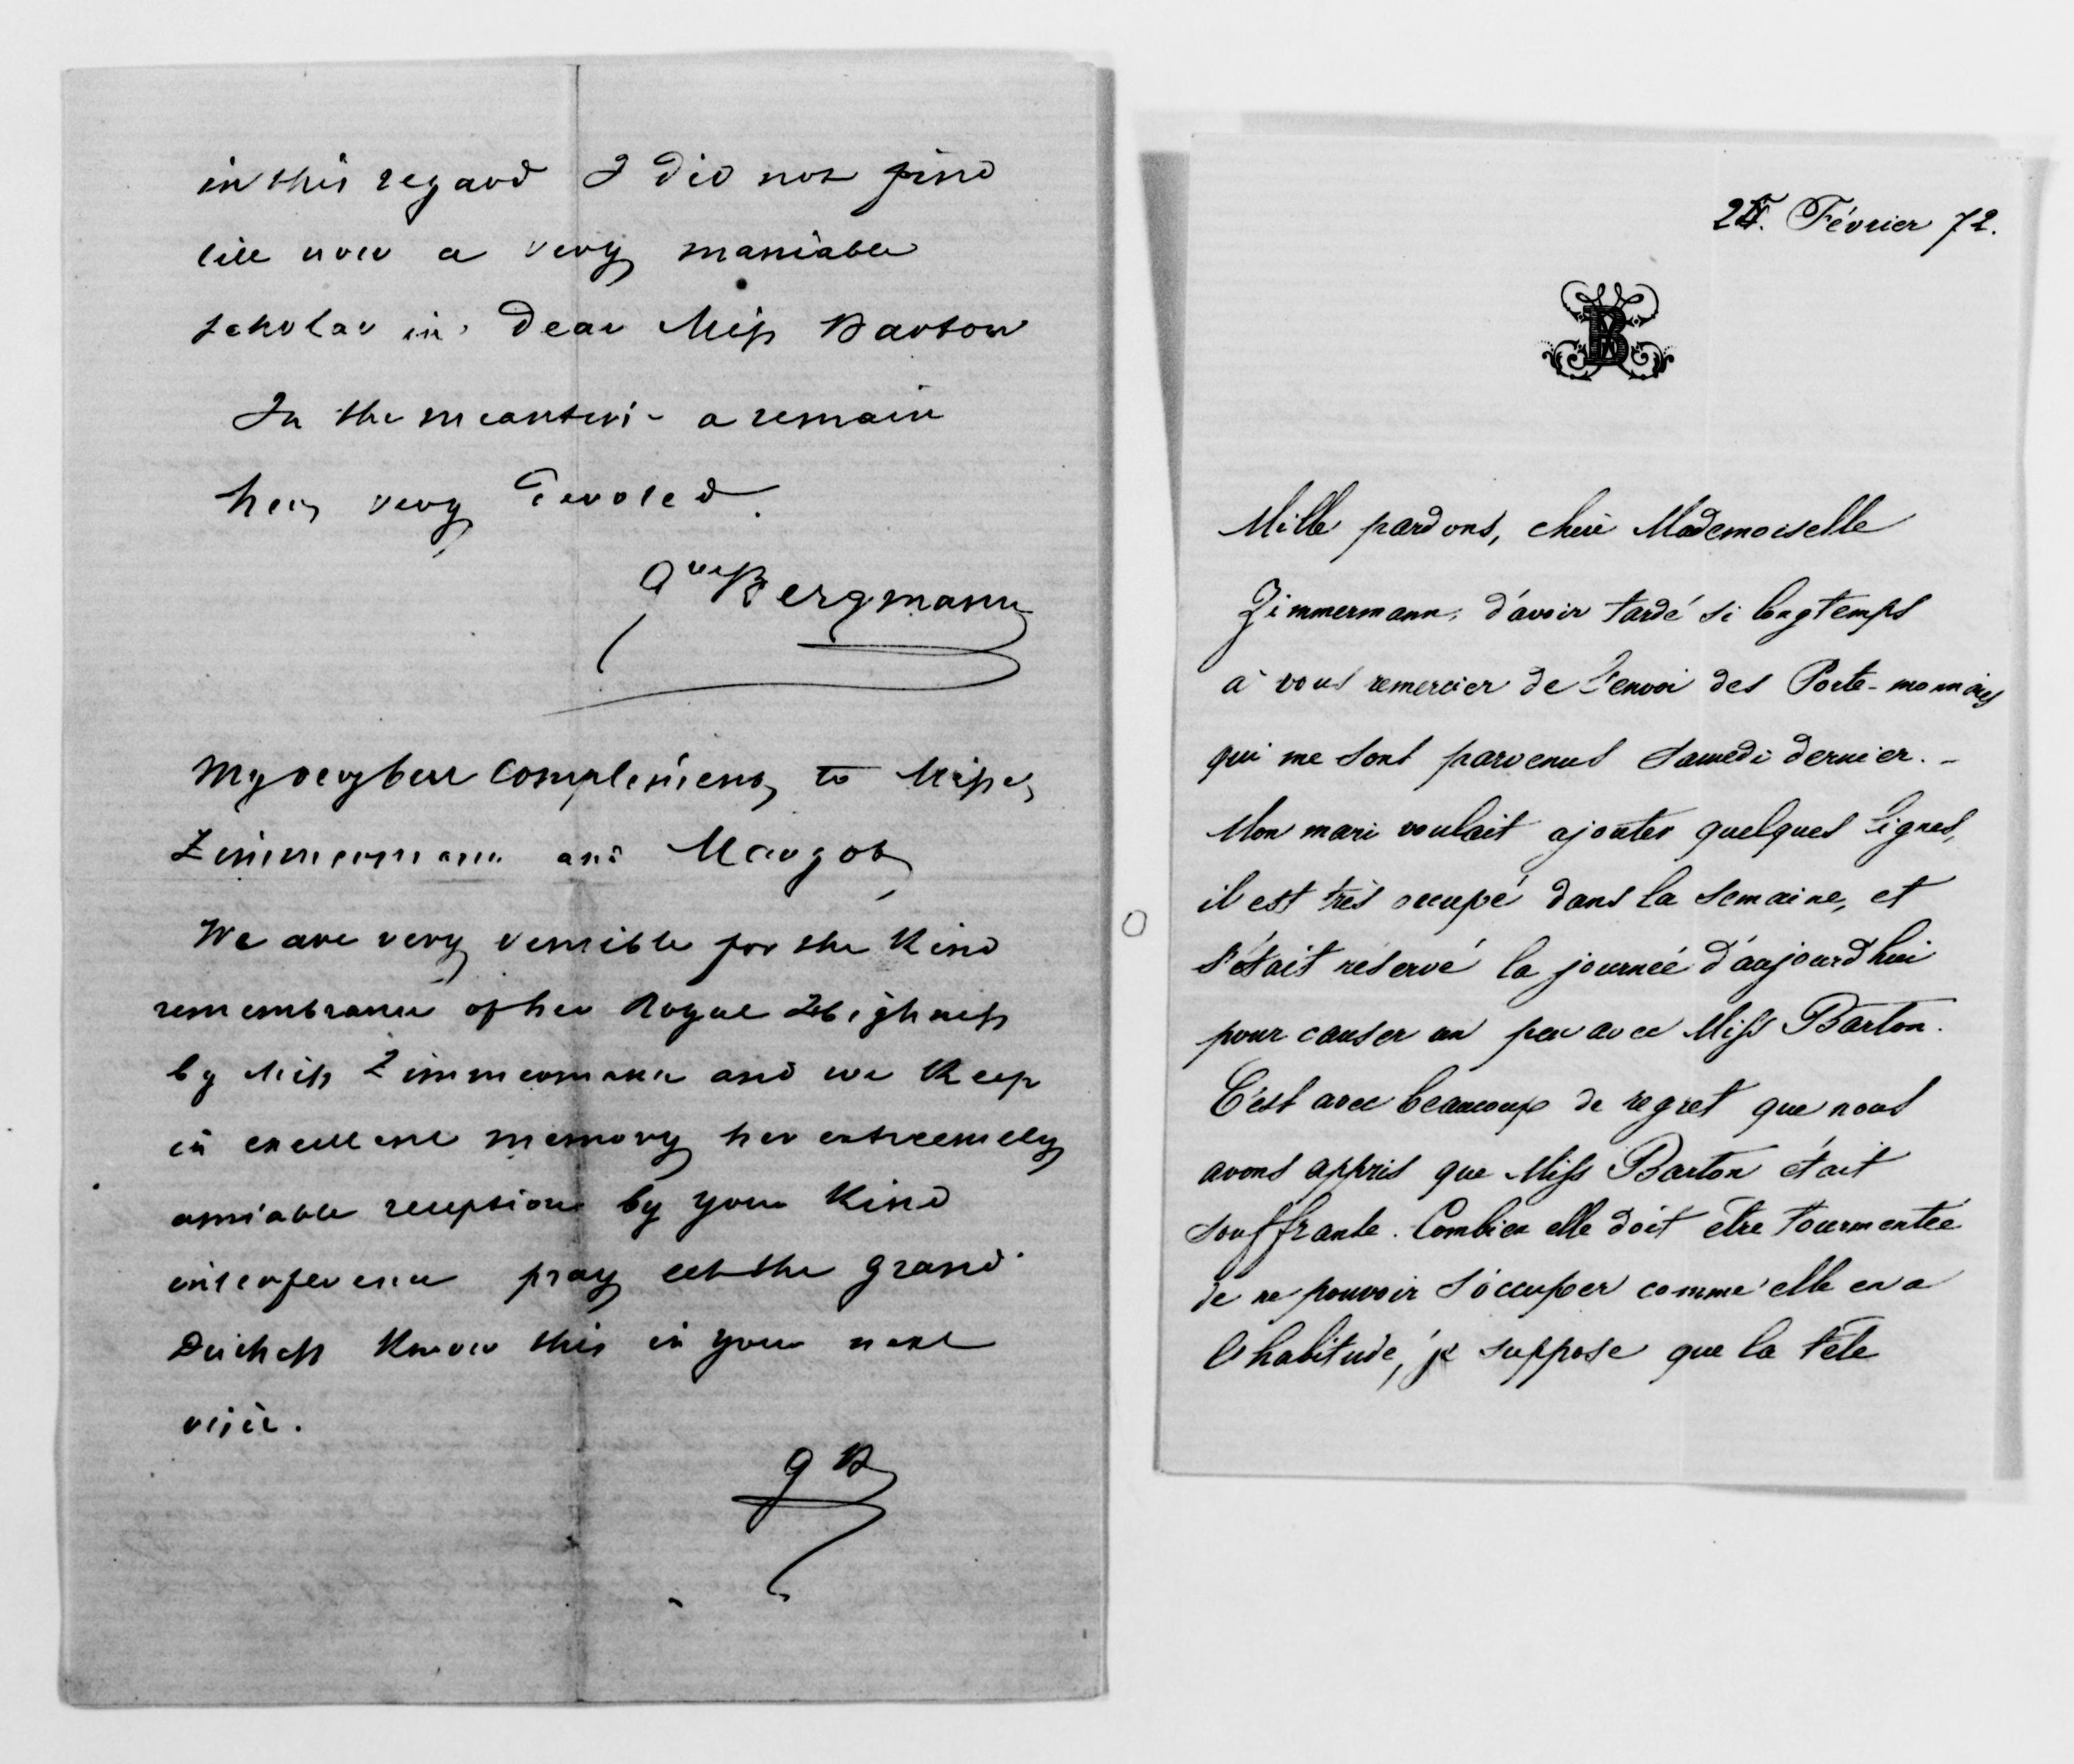 in this regard I did not find
till now a very maniable
scholar in dear Miss Barton
In the meantime a remain
her very devoted.
Gve Bergmann
My very best compliments to Misses
Zimmermann and Margot
We are very sensible for the kind
remembrance of her Royal Highness
by Miss Zimmermann and we keep
in excellent memory her extreemely
amiable reception by your kind
interference pray let the grand
Duchess know this in your next
visit.
G B
Février 72.
B
Mille pardons, chère Mademoiselle
Zimmermann, d'avoir tardé si longtemps
à vous remercier de l'envoi des Porte-monnaies
qui me sont parvenus Samedi dernier. –
Mon mari voulait ajouter quelques lignes,
il est très occupé dans la semaine, et
s'était réservé la journée d'aujourd'hui
pour causer un peu avec Miss Barton.
C'est avec beaucoup de regret que nous
avons appris que Miss Barton était
souffrante. Combien elle doit être tourmentée
de ne pouvoir s'occuper comme elle en a
l'habitude, je suppose que la tête